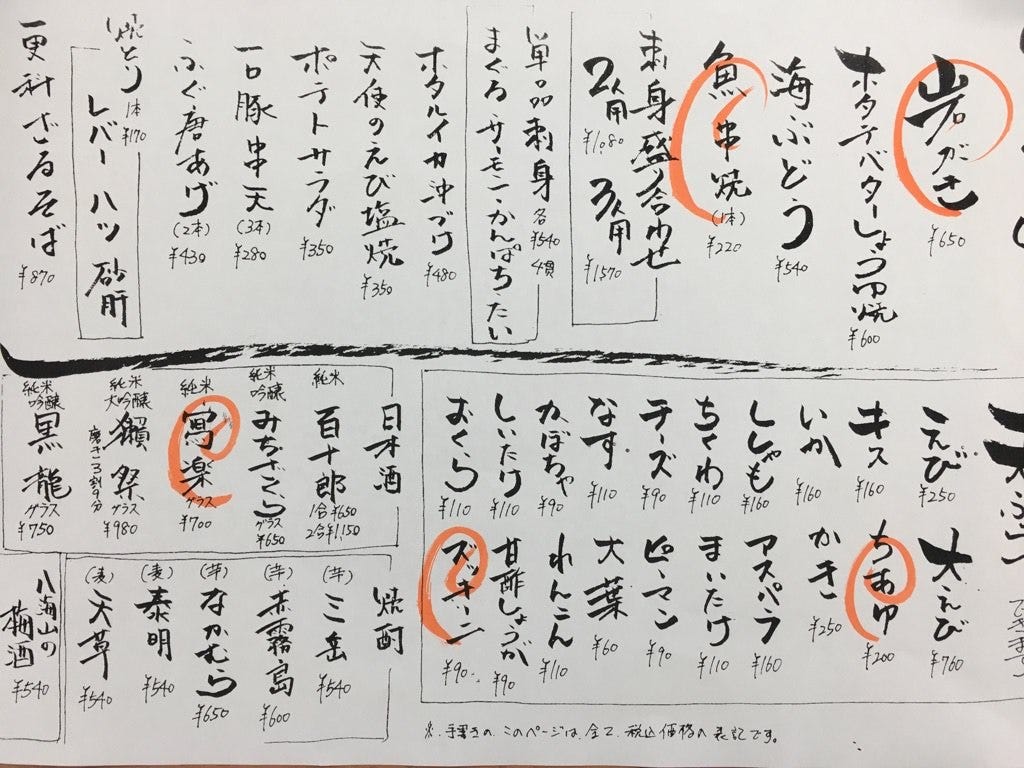 岩がき
¥650
ホタテバターしょうゆ焼
¥600
海ぶどう
¥540
魚串焼(1本)
¥220
刺身盛り合わせ
2人用 3人用
¥1,080 ¥1570
単品刺身 各¥540 4貫
まぐろ サーモン かんぱち たい
ホタルイカ沖づけ
¥480
天使のえび塩焼
¥350
ポテトサラダ
¥350
一口豚串天(3本)
¥280
ふぐ唐あげ(2本)
¥430
焼とり 1本¥170
レバー ハツ 砂肝
更科ざるそば
¥870
天ぷら
こえび
¥250
大えび
¥760
キス
¥160
ちあゆ
¥200
いか
¥160
かき
¥250
ししゃも
¥160
アスパラ
¥160
ちくわ
¥110
まいたけ
¥110
チーズ
¥90
ピーマン
¥90
なす
¥110
大葉
¥60
かぼちゃ
¥90
れんこん
¥110
しいたけ
¥110
甘酢しょうが
¥90
おくら
¥110
ズッキーニ
¥90
日本酒
純米
百十郎
1合¥650
2合¥1,150
純米吟醸
みちざくら
グラス
¥650
純米
寫楽
グラス
¥700
純米大吟醸
獺祭
磨き3割9分
グラス
¥980
純米吟醸
黒龍
グラス
¥750
焼酎
(芋)三岳
¥540
(芋)赤霧島
¥600
(芋)なかむら
¥650
(麦)泰明
¥540
(麦)天草
¥540
八海山の梅酒
¥540
※.手書きの、このページは、全て、税込価格の表記です。